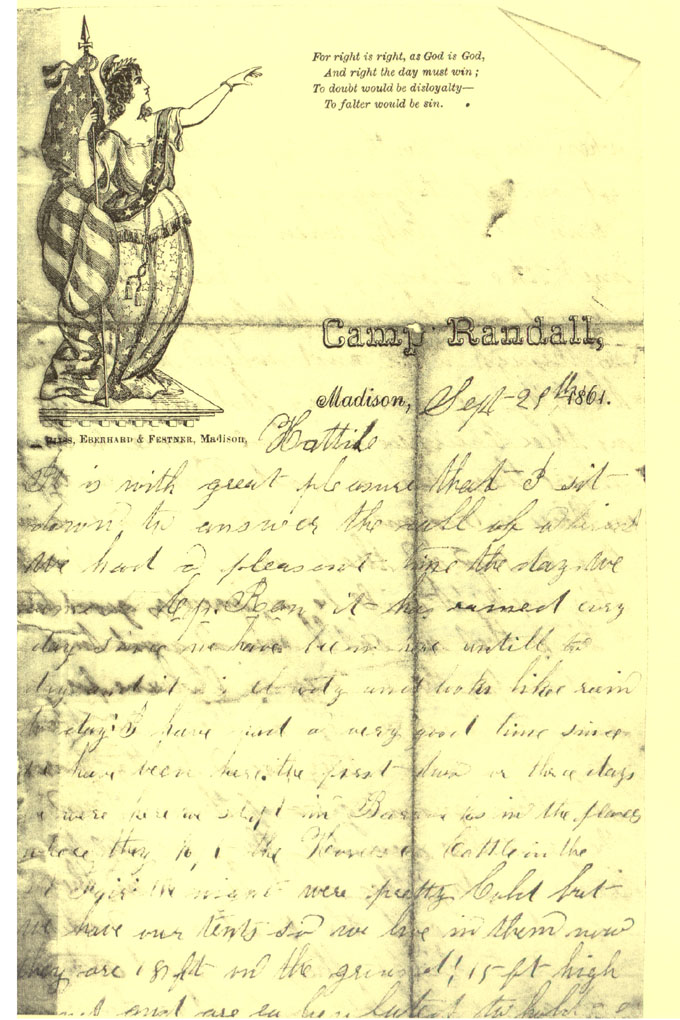 For right is right, as God is God,
And right the day must win;
To doubt would be disloyalty—
To falter would be sin.
Camp Randall,
Madison, Sept 1861.
EBERHARD & FESTNER, Madison,
Hattie
It is with great pleasure that I sit
down to answer the call of a friend
We had a pleasant time the day we
it has rained every
day since we have been here untill to
day and it is and looks like rain
to day I have had a very good time since
we have been here. the first two or three days
we were here we slept in Barracks in the places
where they the Horses & Cattle in the
the nights were pretty Cold but
we have our tents so we live in them now
they are 18 ft on the ground 15 ft high
and are to hold